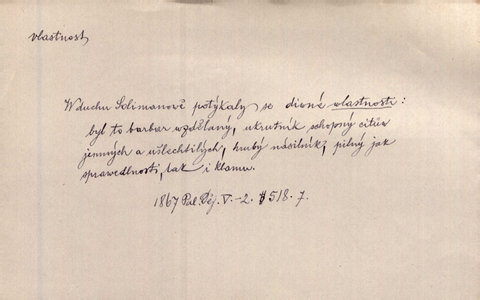 vlastnost
W duchu Solimanově potýkaly se divné vlastnosti:
byl to barbar wzdělaný, ukrutník schopný citůw
jemných a ušlechtilých, hrubý násilník, pilný jak
sprawedlnosti, tak i klamu.
1867 Pal. Děj. V.-2. 518. 7.